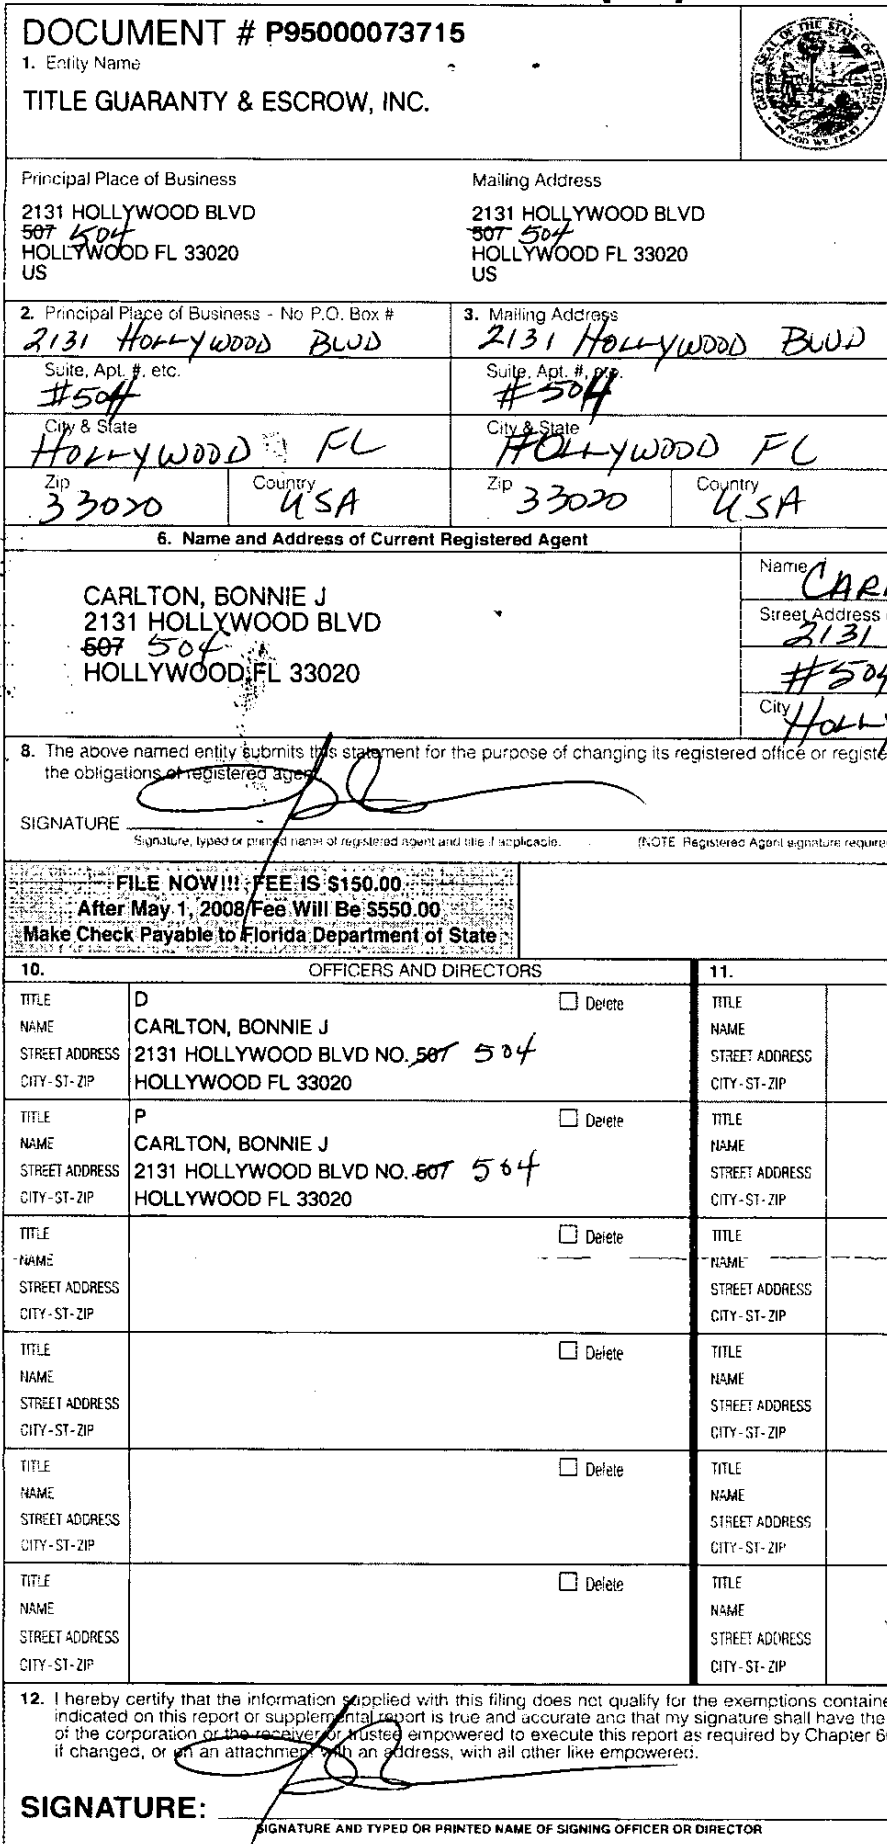 DOCUMENT # P95000073715
1. Entity Name
TITLE GUARANTY & ESCROW, INC.
GREAT SEAL OF THE STATE OF FLORIDA
IN GOD WE TRUST
Principal Place of Business
2131 HOLLYWOOD BLVD
507 504
HOLLYWOOD FL 33020
US
Mailing Address
2131 HOLLYWOOD BLVD
507 504
HOLLYWOOD FL 33020
US
2. Principal Place of Business - No P.O. Box #
2131 HOLLYWOOD BLVD
Suite, Apt. #, etc.
#504
City & State
HOLLYWOOD FL
Zip
33020
Country
USA
3. Mailing Address
2131 HOLLYWOOD BLVD
Suite, Apt. #, etc.
#504
City & State
HOLLYWOOD FL
Zip
33020
Country
USA
6. Name and Address of Current Registered Agent
CARLTON, BONNIE J
2131 HOLLYWOOD BLVD
507 504
HOLLYWOOD FL 33020
Name
CAR
Street Address
2131
#504
City
HOLLY
8. The above named entity submits this statement for the purpose of changing its registered office or registe
the obligations of registered agent.
SIGNATURE
Signature, typed or printed name of registered agent and title if applicable. (NOTE Registered Agent signature require
FILE NOW!!! FEE IS $150.00
After May 1, 2008 Fee Will Be $550.00
Make Check Payable to Florida Department of State
10. OFFICERS AND DIRECTORS
TITLE D Delete
NAME CARLTON, BONNIE J
STREET ADDRESS 2131 HOLLYWOOD BLVD NO. 507 504
CITY-ST-ZIP HOLLYWOOD FL 33020
TITLE P Delete
NAME CARLTON, BONNIE J
STREET ADDRESS 2131 HOLLYWOOD BLVD NO. 507 504
CITY-ST-ZIP HOLLYWOOD FL 33020
TITLE Delete
NAME
STREET ADDRESS
CITY-ST-ZIP
TITLE Delete
NAME
STREET ADDRESS
CITY-ST-ZIP
TITLE Delete
NAME
STREET ADDRESS
CITY-ST-ZIP
TITLE Delete
NAME
STREET ADDRESS
CITY-ST-ZIP
11.
TITLE
NAME
STREET ADDRESS
CITY-ST-ZIP
TITLE
NAME
STREET ADDRESS
CITY-ST-ZIP
TITLE
NAME
STREET ADDRESS
CITY-ST-ZIP
TITLE
NAME
STREET ADDRESS
CITY-ST-ZIP
TITLE
NAME
STREET ADDRESS
CITY-ST-ZIP
TITLE
NAME
STREET ADDRESS
CITY-ST-ZIP
12. I hereby certify that the information supplied with this filing does not qualify for the exemptions containe
indicated on this report or supplemental report is true and accurate and that my signature shall have the
of the corporation or the receiver or trustee empowered to execute this report as required by Chapter 6
if changed, or on an attachment with an address, with all other like empowered.
SIGNATURE:
SIGNATURE AND TYPED OR PRINTED NAME OF SIGNING OFFICER OR DIRECTOR